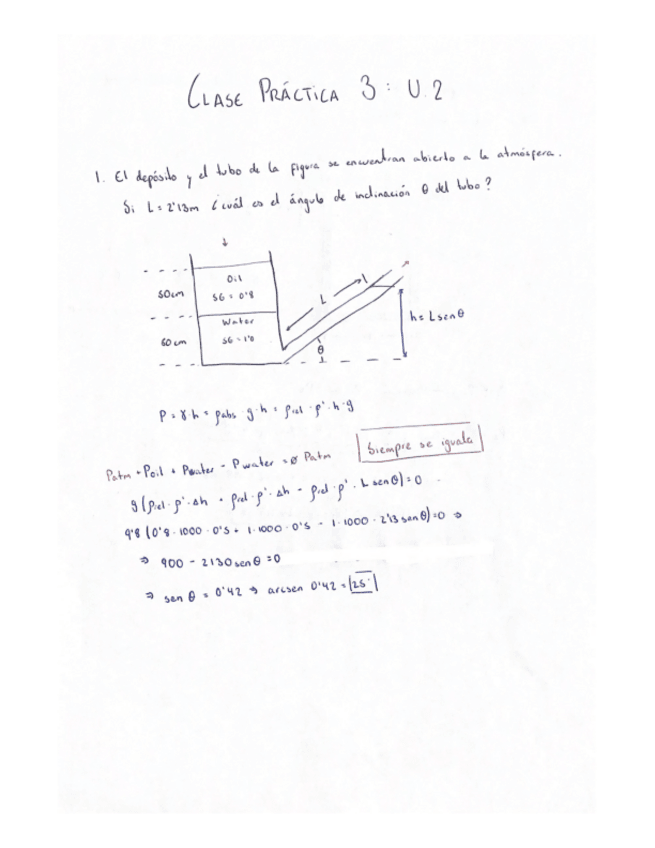 CLASE PRÁCTICA 3: U.2
1. El depósito y el tubo de la figura se encuentran abierto a la atmósfera.
Si L = 2'13m ¿cuál es el ángulo de inclinación θ del tubo?
50cm
Oil
SG = 0'8
60cm
Water
SG = 1'0
L
θ
h = L senθ
P = γ·h = ρabs·g·h = ρrel·ρ'·h·g
Patm + Poil + Pwater - Pwater = Patm
Siempre se iguala
g(ρrel·ρ'·Δh + ρrel·ρ'·Δh - ρrel·ρ'·L senθ) = 0
9'8 (0'8·1000·0'5 + 1·1000·0'5 - 1·1000·2'13 senθ) = 0 ⇒
⇒ 900 - 2130 senθ = 0
⇒ sen θ = 0'42 ⇒ arcsen 0'42 = 25°